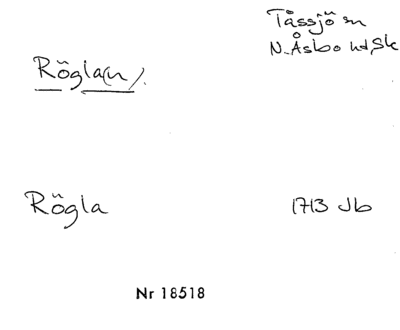 Tåssjö sn
N. Åsbo hd, Sk
Rögla(n).
Rögla 1713 Jb
Nr 18518